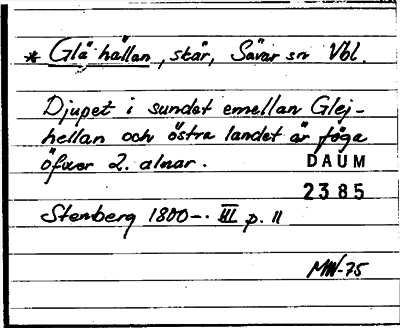 * Glä hällan, skär, Sävar sn Vbl.
Djupet i sundet emellan Glej-
hellan och östra landet är föga
öfver 2. alnar.
DAUM
2385
Stenberg 1800-. III p. 11
MW-75